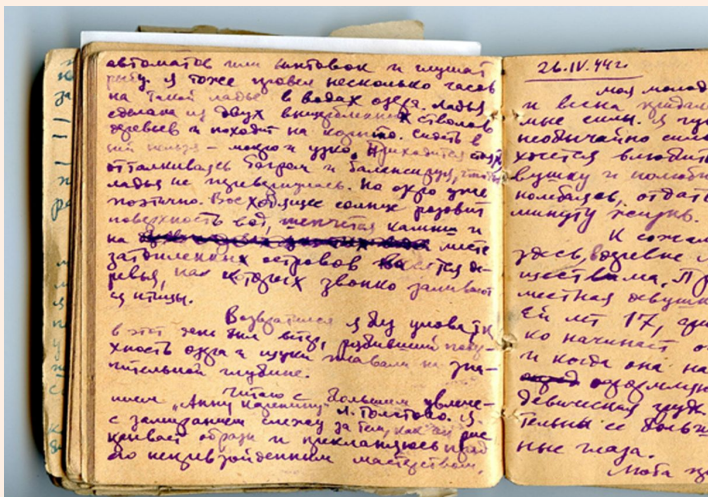 автоматов или винтовок и глушат
рыбу. Я тоже провел несколько часов
на такой ладье в водах озера. Ладья
сделана из двух выдолбленных стволов
деревьев и походит на корыто. Сидеть в
ней нельзя - мокро и узко. Приходится стоя
отталкиваясь багром и балансируя, чтобы
ладья не
поэтично. Восходящее солнце розовит
поверхность вод, камыш и
на месте
затопленных островов де-
ревья, на которых звонко заливают
ся птицы.
Возвратился я без улова, т.к
в этот день был ветер, рябивший повер-
хность озера и щуки плавали на зна-
чительной глубине.
Читаю с большим увлече-
нием „Анну Каренину" Л. Толстово. Я
с замиранием слежу за тем как он рис
образы и преклоняюсь пред
его непревзойденным мастерством.
26.IV.44г.
Моя молод
и весна придал
мые силы. Я чу
необычайно силь
хочется влюбить
вушку и полюби
колеблясь, отдать
минуту жизнь.
К сожал
здесь, в деревне
ществами.
местная девушк
Ей лет 17,
ко начинает
и когда она на
девическая грудь
тельны ее больш
ные глаза.